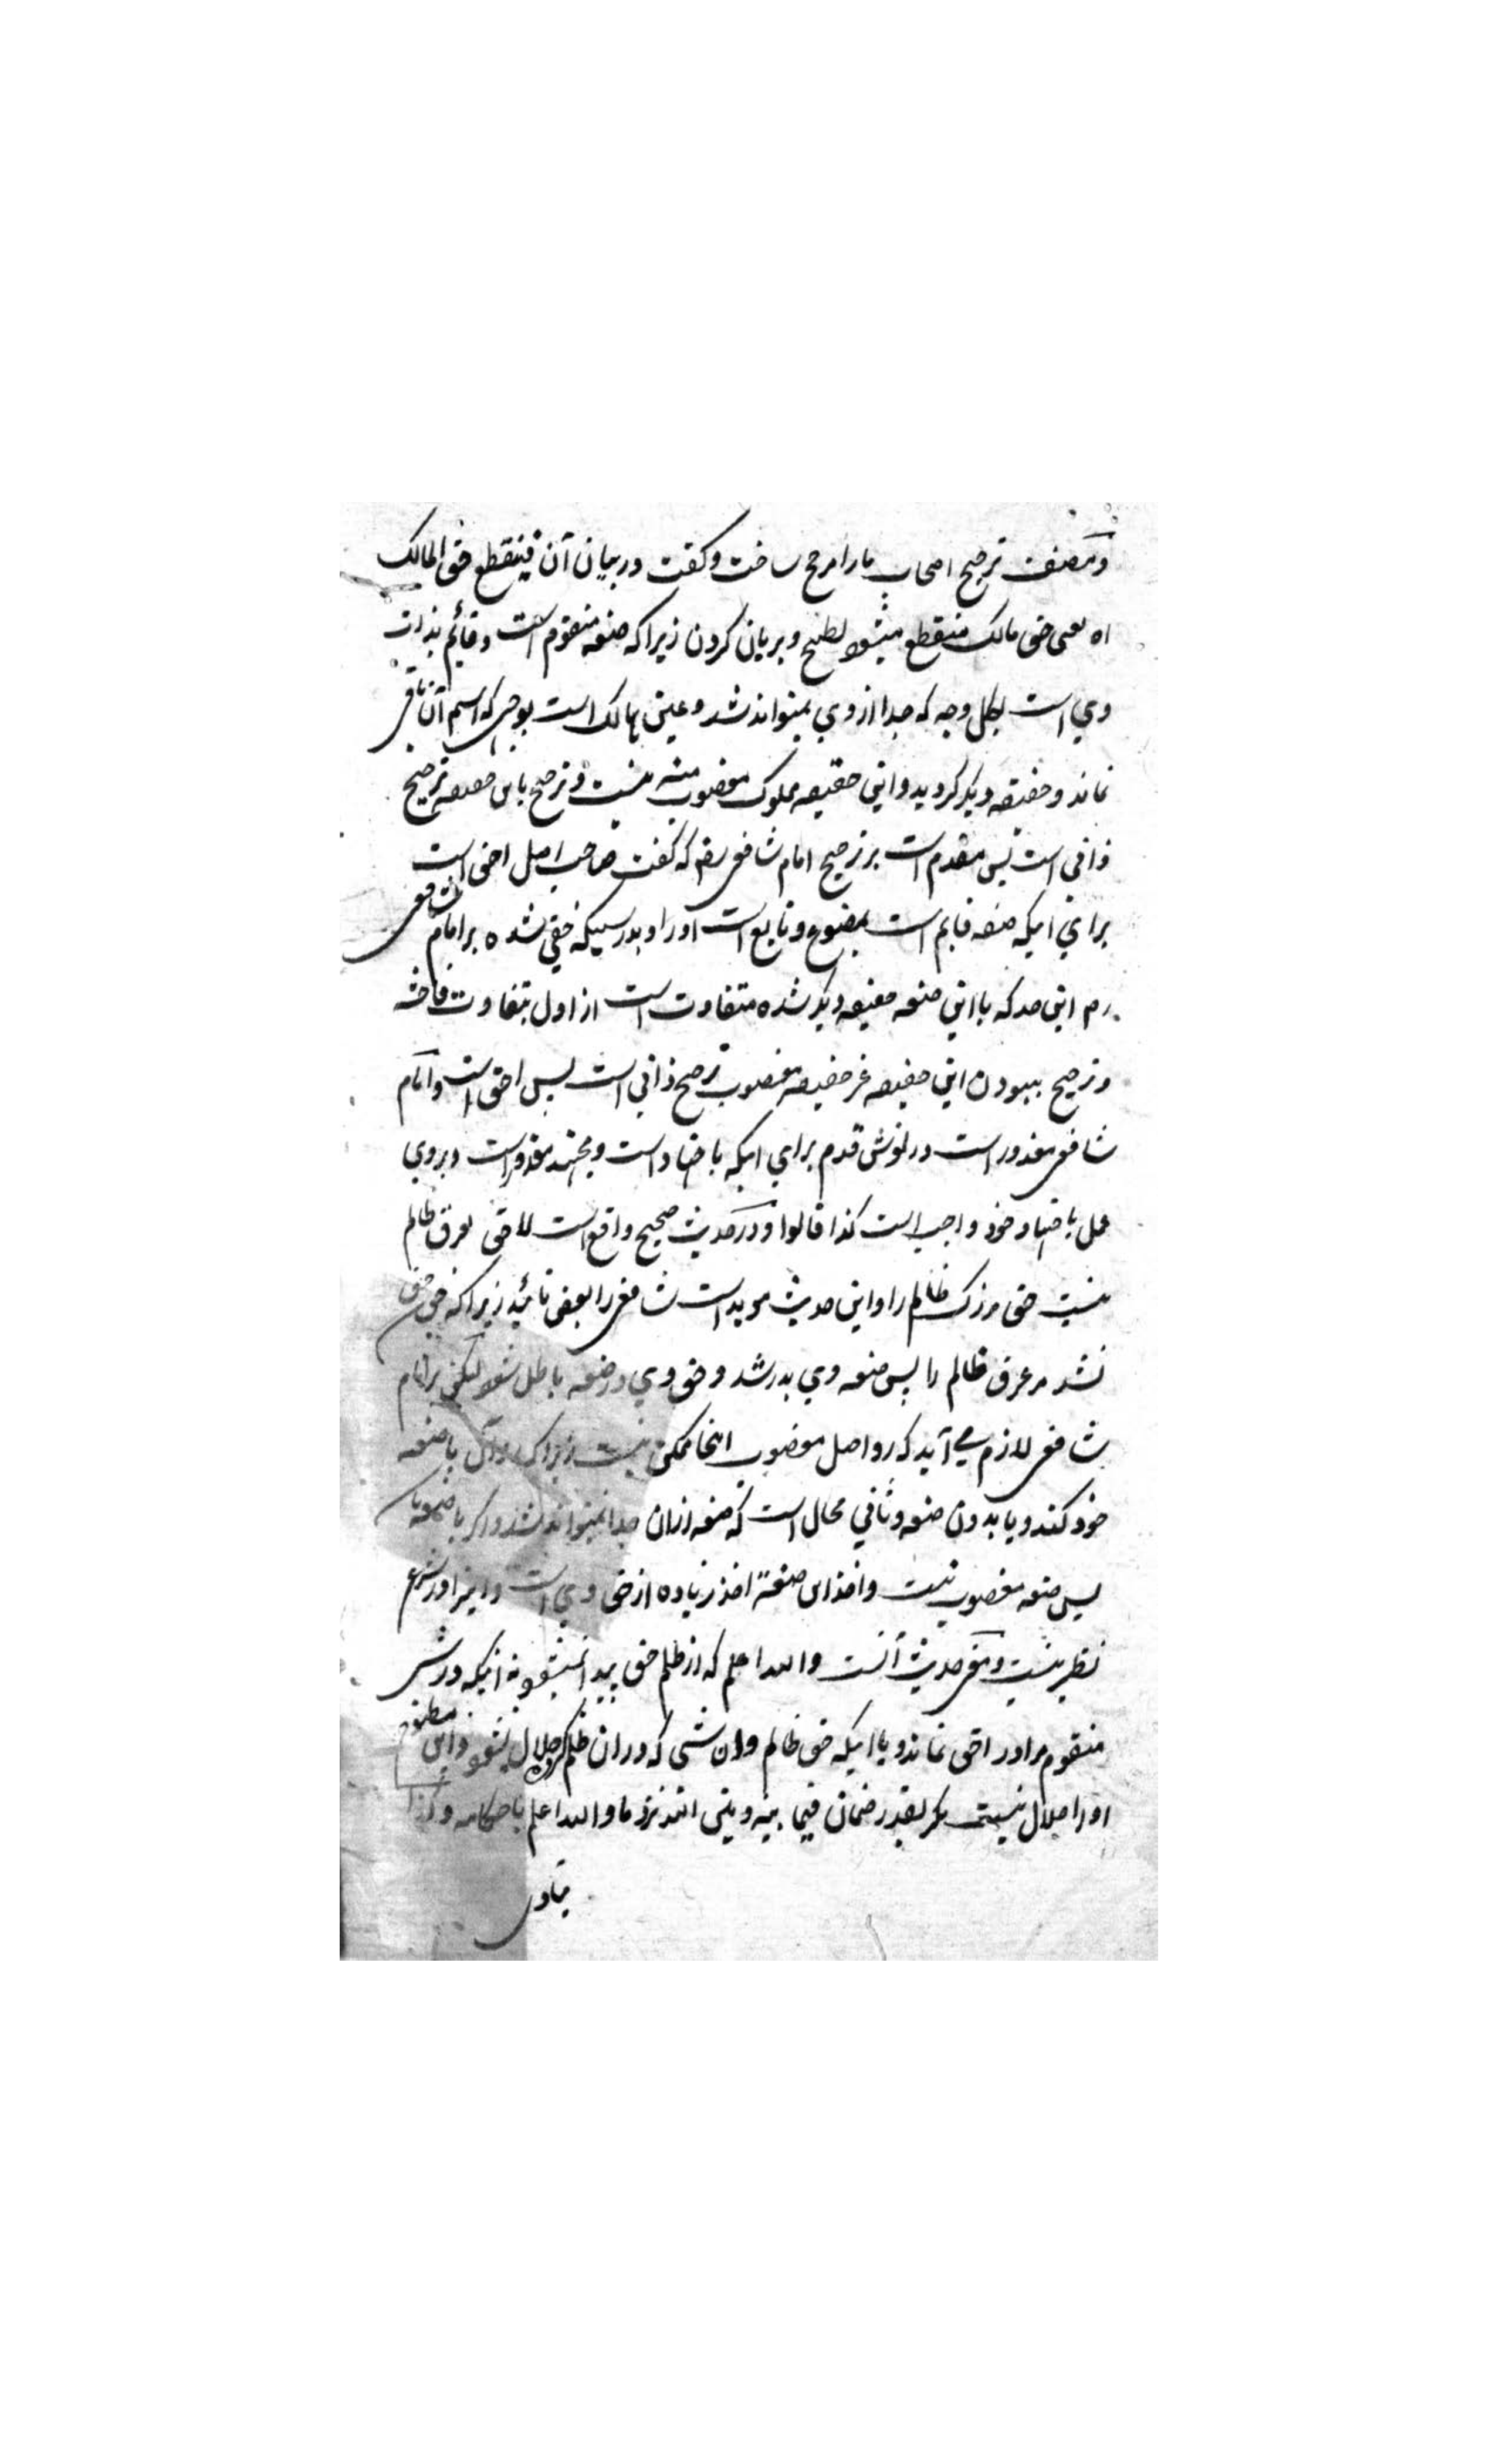 ومصنف ترجیح اصحاب مارا مرجح ساخت وکفت در بیان آن فینقطع حق المالک
اه یعنی حق مالک منقطع میشود بطبخ وبریان کردن زیراکه صنعه متقوم است وقائم بذات
وي است بکل وجه که جدا ازوي نمیتواند شد وعین هالک است بوجهی که اسم آن باقی
نماند وحقیقه دیکر کردید واین حقیقه مملوک مغصوب منه نیست وترجیح باین حقیقه ترجیح
ذاتي است پس مقدم است بر ترجیح امام شافعی رم که کفت صاحب اصل احق است
براي اینکه صنعه قایم است بمصنوع وتابع است اورا وبدرستیکه خفي نشده بر امام شافعی
رم این مدرکه بااین صنعه حقیقه دیکر شده متفاوت است از اول بتفاوت فاحشه
وترجیح ببودن این حقیقه غیر حقیقه مغصوب ترجیح ذاتي است پس احق است وامام
شافعی معذور است در لغزش قدم براي اینکه باجتهاد است ومجتهد معذور است وبروي
عمل باجتهاد خود واجب است کذا قالوا ودر حدیث صحیح واقع است لا حق لعرق ظالم
نیست حق مرزک ظالم را واین حدیث موید است شافعی را بعض تائید زیراکه چون حق
نشد مر عرق ظالم را پس صنعه وي بدر شد وحق وي در صنعه باطل شود لیکن بر امام
شافعی لازم مي آید که رد اصل مغصوب اینجا ممکن نیست زیراکه رد آن با صنعه
خود کند ویا بدون صنعه وثاني محال است که صنعه ازان جدا نمیتواند شد واکر با صنعه
پس صنعه مغصوب نیست واخذ این صنعه اخذ زیاده از حق وي است واینرا در شرع
نظیر نیست ومعنی حدیث آنست والله اعلم که از ظلم حق پیدا نمیشود نه اینکه در شی
متقوم مر اورا حق نماند ویا اینکه حق ظالم دران شی که دران ظلم کرده حلال نشود واین مطبوخ
اورا حلال نیست مکر بقدر ضمان فیما بینه وبین الله نزد ما والله اعلم باحکامه وکذا